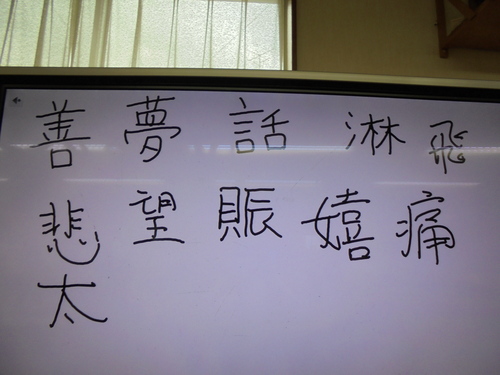 善 夢 話 淋 飛
悲 望 賑 嬉 痛
太